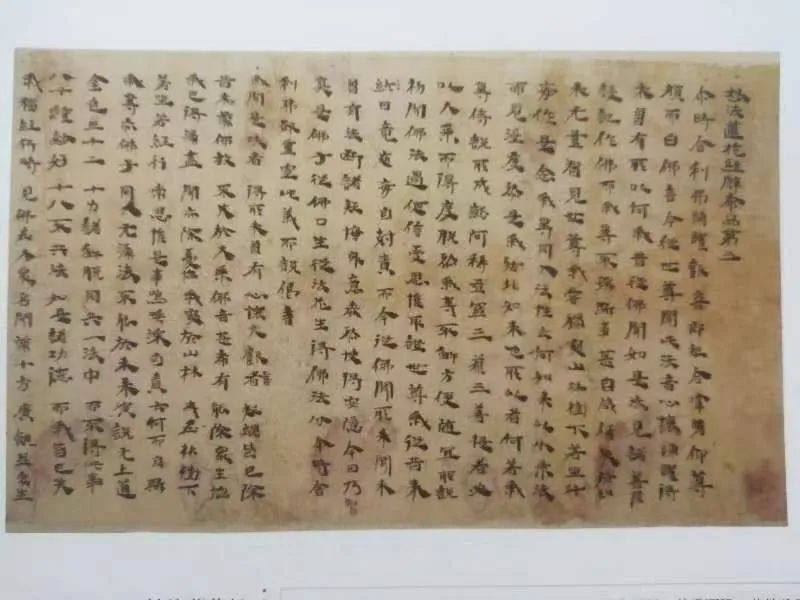 妙法蓮花經 品第
尒時舍利弗踊躍歡喜即起合掌瞻仰尊
顏而白佛言今從世尊聞此法音心懷踊躍得
未曾有所以何我昔從佛聞如是法見諸菩薩
授記作佛而我等不豫斯事甚自感傷失於如
來无量知見世尊我常獨處山林樹下若坐若
行 作是念我等同入法性云何如來以小乘法
而見濟度 是我 也所以者何若我
等待說所 成就阿耨 三藐三菩提者必
以大乘而得度脫然我等不解方便隨宜所說
初聞佛法遇便信受思惟取證世尊我從昔來
終日竟夜 自剋責而今從佛聞所未聞未
曾有法斷諸疑悔身意泰然快得安隱今日乃知
真是佛子從佛口生從法化生得佛法分尒時舍
利弗欲重宣此義而說偈言
我聞是法音 得所未曾有 心懷大歡喜 疑網皆已除
昔來蒙佛教 不失於大乘 佛音甚希有 能除眾生惱
我已得漏盡 聞亦除憂惱 我處於山林 或在林樹下
若坐若經行 常思惟是事 嗚呼深自責 云何而自欺
我等亦佛子 同入无漏法 不能於未來 演說无上道
金色三十二 十力諸解脫 同共一法中 而不得此事
八十種妙好 十八不共法 如是等功德 而我皆已失
我獨經行時 見佛在大眾 名聞滿十方 廣饒益眾生